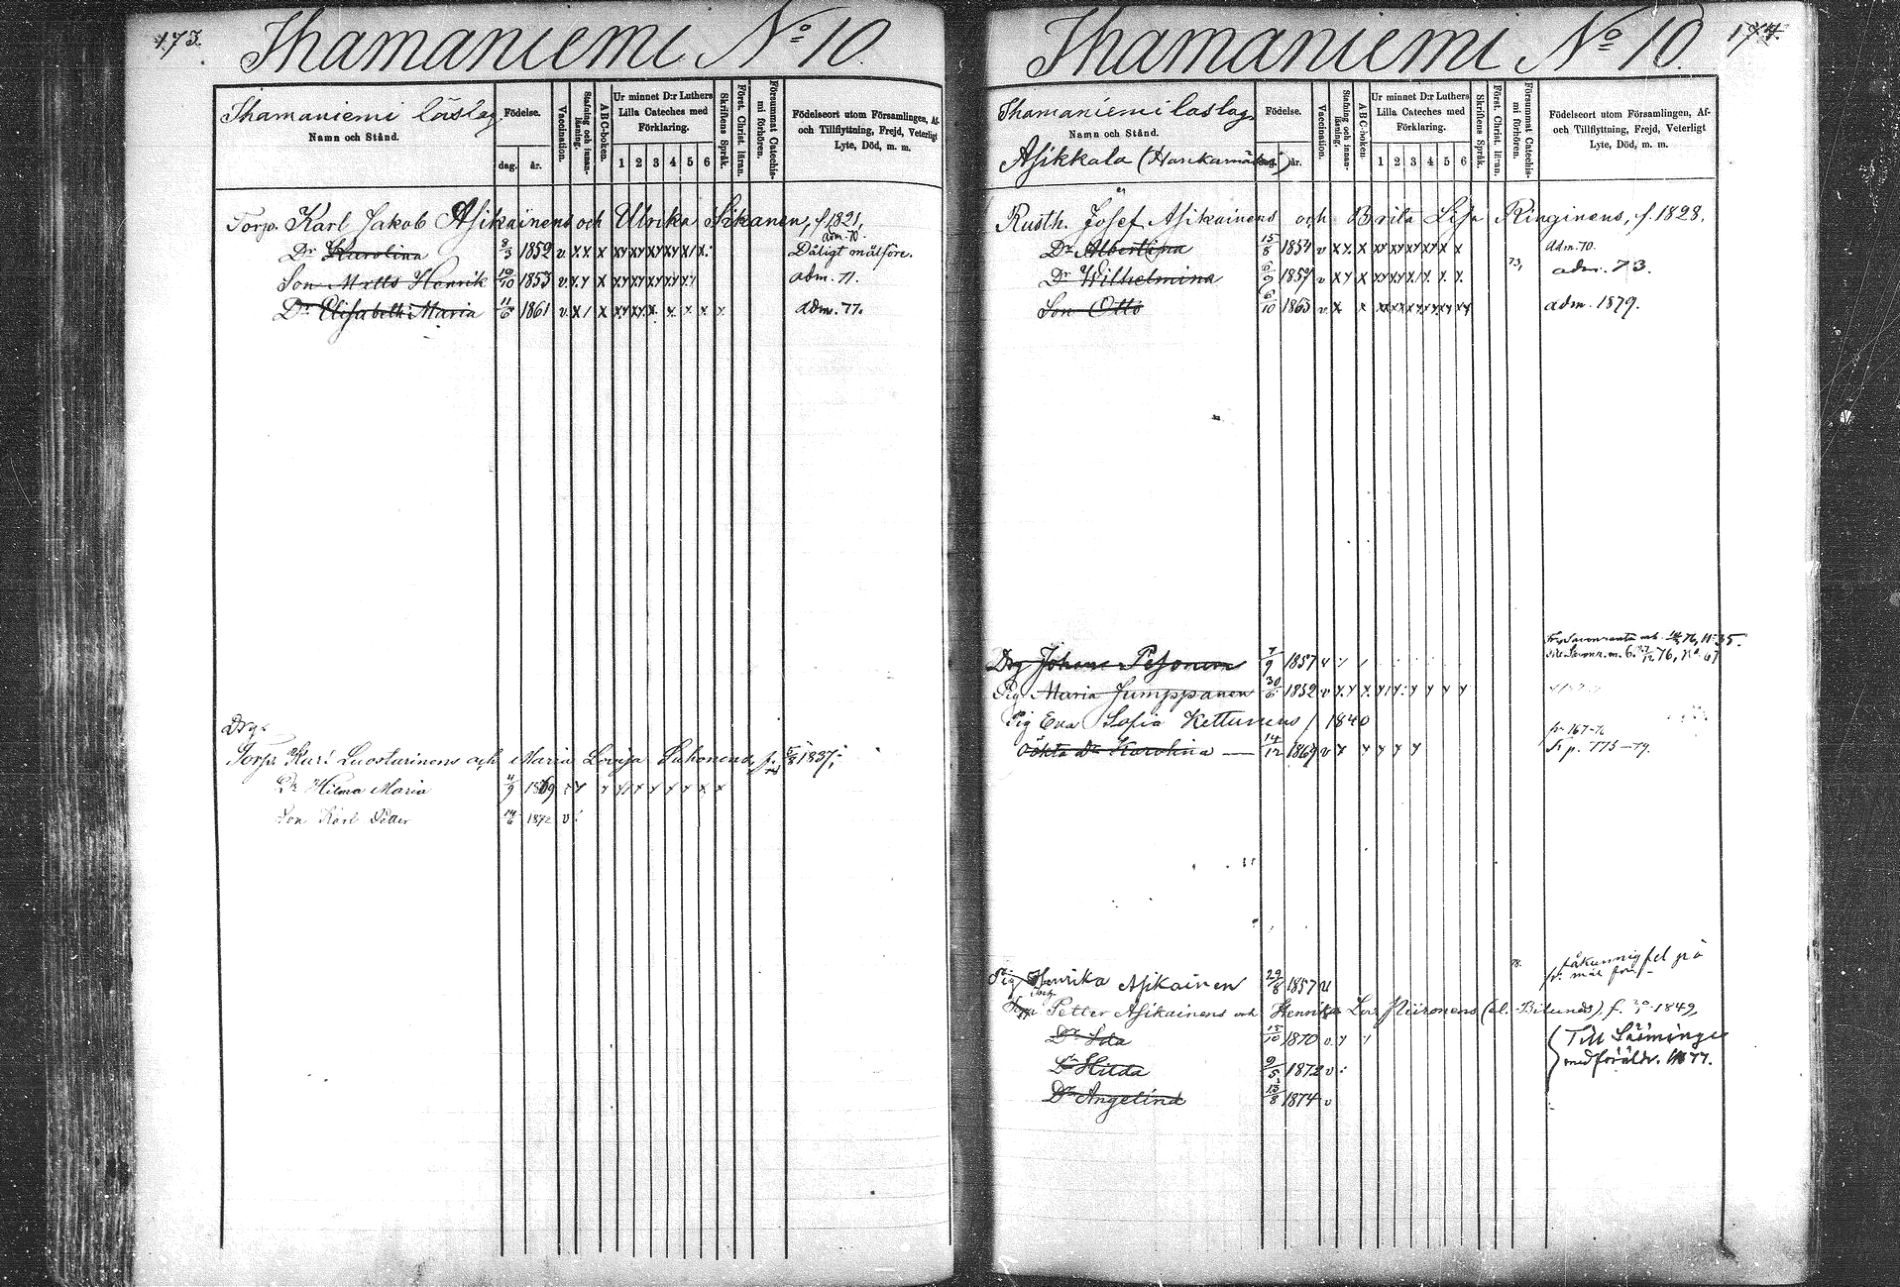 173.
Ihamaniemi No 10.
Ihamaniemi läslag.
Namn och Stånd.
Födelse.
dag. år.
Vaccination.
Stafning och innan-läsning.
ABC-boken.
Ur minnet D:r Luthers
Lilla Cateches med
Förklaring.
1 2 3 4 5 6
Skriftens Språk.
Först. Christ. läran.
Försummat Catechismi förhören.
Födelseort utom Församlingen, Af-
och Tillflyttning, Frejd, Veterligt
Lyte, Död, m. m.
Torp. Karl Jakob Asikainens och Ulrika Sikanen, f. 1821,
Dr Karolina 8/3 1852 adm. 70. Dåligt målföre.
Son Matts Henrik 10/10 1853 adm. 71.
Dr Elisabeth Maria 11/6 1861 adm. 77.
Drg
Torp. Karl Luostarinens och Maria Lovisa Suhonens, 1837;
Dr Hilma Maria 1869
Son Karl Petter 1872
174.
Ihamaniemi No 10.
Ihamaniemi läslag.
Namn och Stånd.
Asikkala
Födelse.
år.
Vaccination.
Stafning och innan-läsning.
ABC-boken.
Ur minnet D:r Luthers
Lilla Cateches med
Förklaring.
1 2 3 4 5 6
Skriftens Språk.
Först. Christ. läran.
Försummat Catechismi förhören.
Födelseort utom Församlingen, Af-
och Tillflyttning, Frejd, Veterligt
Lyte, Död, m. m.
Rusth. Josef Asikainens och Brita Lisa Ringinens, f. 1828.
Dr Albertina 15/8 1854 adm. 70.
Dr Wilhelmina 1857 73, adm. 73.
Son Otto 6/10 1863 adm. 1879.
Drg Johan Pesonen 7/9 1857
Pig Maria Jumppanen 30/6 1852
Pig Eva Sofia Kettunens 1840 fr. 167-76
oäkta Dr Karolina 14/12 1869 Fr p. 775-79.
Pig Henrika Asikainen 29/8 1857
Petter Asikainens och Henrika Niironens f. 1849,
Dr Ida 15/10 1870 Till Sääminge
Dr Hilda 9/5 1872 med föräldr. 1877.
Dr Angelina 13/8 1874